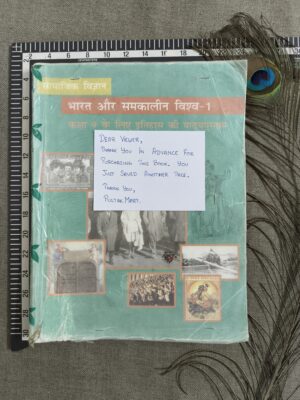 सामाजिक विज्ञान
भारत और समकालीन विश्व-1
कक्षा 9 के लिए इतिहास की पाठ्यपुस्तक
DEAR VIEWER,
THANK YOU IN ADVANCE FOR
PURCHASING THIS BOOK. YOU
JUST SAVED ANOTHER TREE.
THANK YOU,
PUSTAK MART.